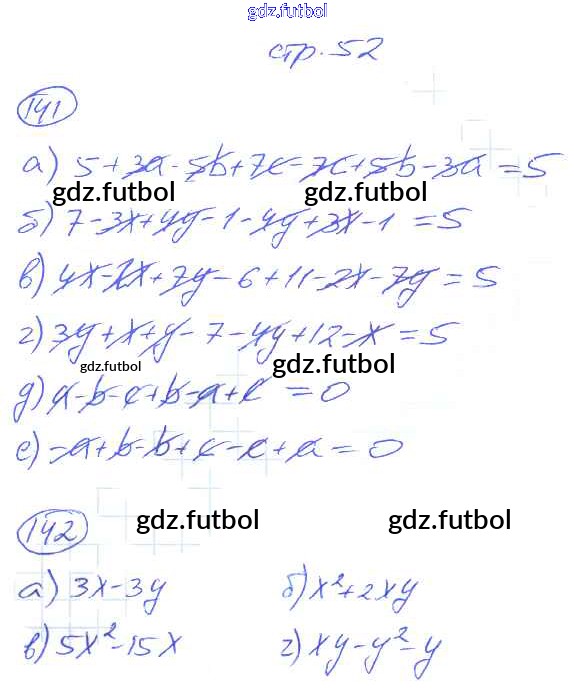 gdz.futbol
стр. 52
141
а) 5+3a-5b+7c-7c+5b-3a=5
gdz.futbol gdz.futbol
б) 7-3x+4y-1-4y+3x-1=5
в) 4x-2x+7y-6+11-2x-7y=5
г) 3y+x+y-7-4y+12-x=5
gdz.futbol gdz.futbol
д) a-b-c+b-a+c=0
е) -a+b-b+c-c+a=0
142 gdz.futbol gdz.futbol
а) 3x-3y б) x²+2xy
в) 5x²-15x г) xy-y²-y